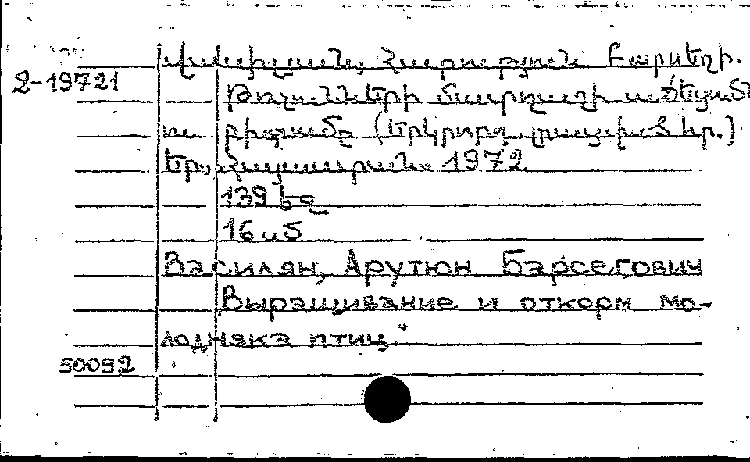 2-19721
Վասիլյան, Հարություն Բարսեղի.
Թռչունների մատղաշի աճեցումն
ու բտումը (Երկրորդ լրացված հր.)
Եր., Հայաստան. 1972.
139 էջ
16 սմ
Василян, Арутюн Барсегович
Выращивание и откорм мо-
лодняка птиц.